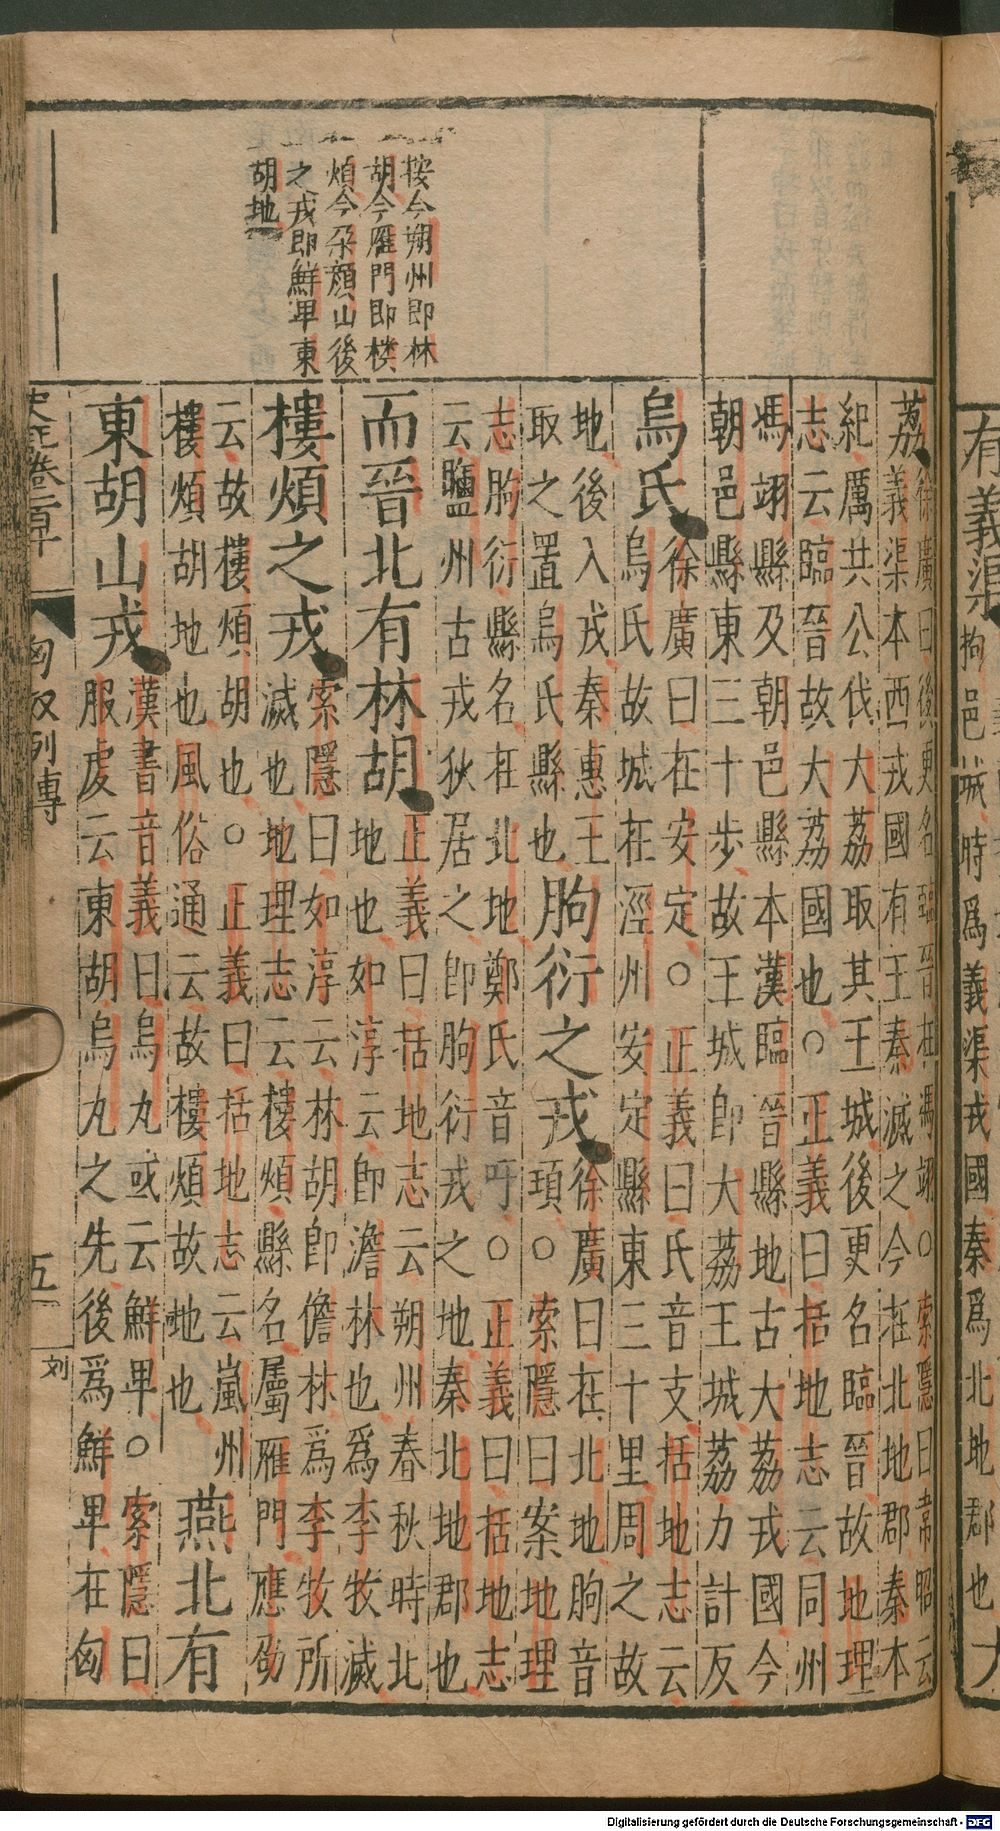 按今朔州即林
胡今雁門即楼
煩今朶顏山後
之戎即鮮卑東
胡地
荔徐廣曰後更名臨晉在馮翊○索隱曰韋昭云
義渠本西戎國有王秦滅之今在北地郡秦本
紀厲共公伐大荔取其王城後更名臨晉故地理
志云臨晉故大荔國也○正義曰括地志云同州
馮翊縣及朝邑縣本漢臨晉縣地古大荔戎國今
朝邑縣東三十步故王城即大荔王城荔力計反
烏氏徐廣曰在安定○正義曰氏音支括地志云
烏氏故城在涇州安定縣東三十里周之故
地後入戎秦惠王
取之置烏氏縣也
朐衍之戎徐廣曰在北地朐音
項○索隱曰案地理
志朐衍縣名在北地鄭氏音吁○正義曰括地志
云鹽州古戎狄居之即朐衍戎之地秦北地郡也
而晉北有林胡正義曰括地志云朔州春秋時北
地也如淳云即澹林也爲李牧滅
樓煩之戎索隱曰如淳云林胡即儋林爲李牧所
滅也地理志云樓煩縣名屬雁門應劭
云故樓煩胡也○正義曰括地志云嵐州
樓煩胡地也風俗通云故樓煩故地也
燕北有
東胡山戎漢書音義曰烏丸或云鮮卑○索隱曰
服虔云東胡烏丸之先後爲鮮卑在匈
史記卷二百十
匈奴列傳
五
刘
有義渠
拘邑城時爲義渠戎國秦爲北地郡也
Digitalisierung gefördert durch die Deutsche Forschungsgemeinschaft - DFG